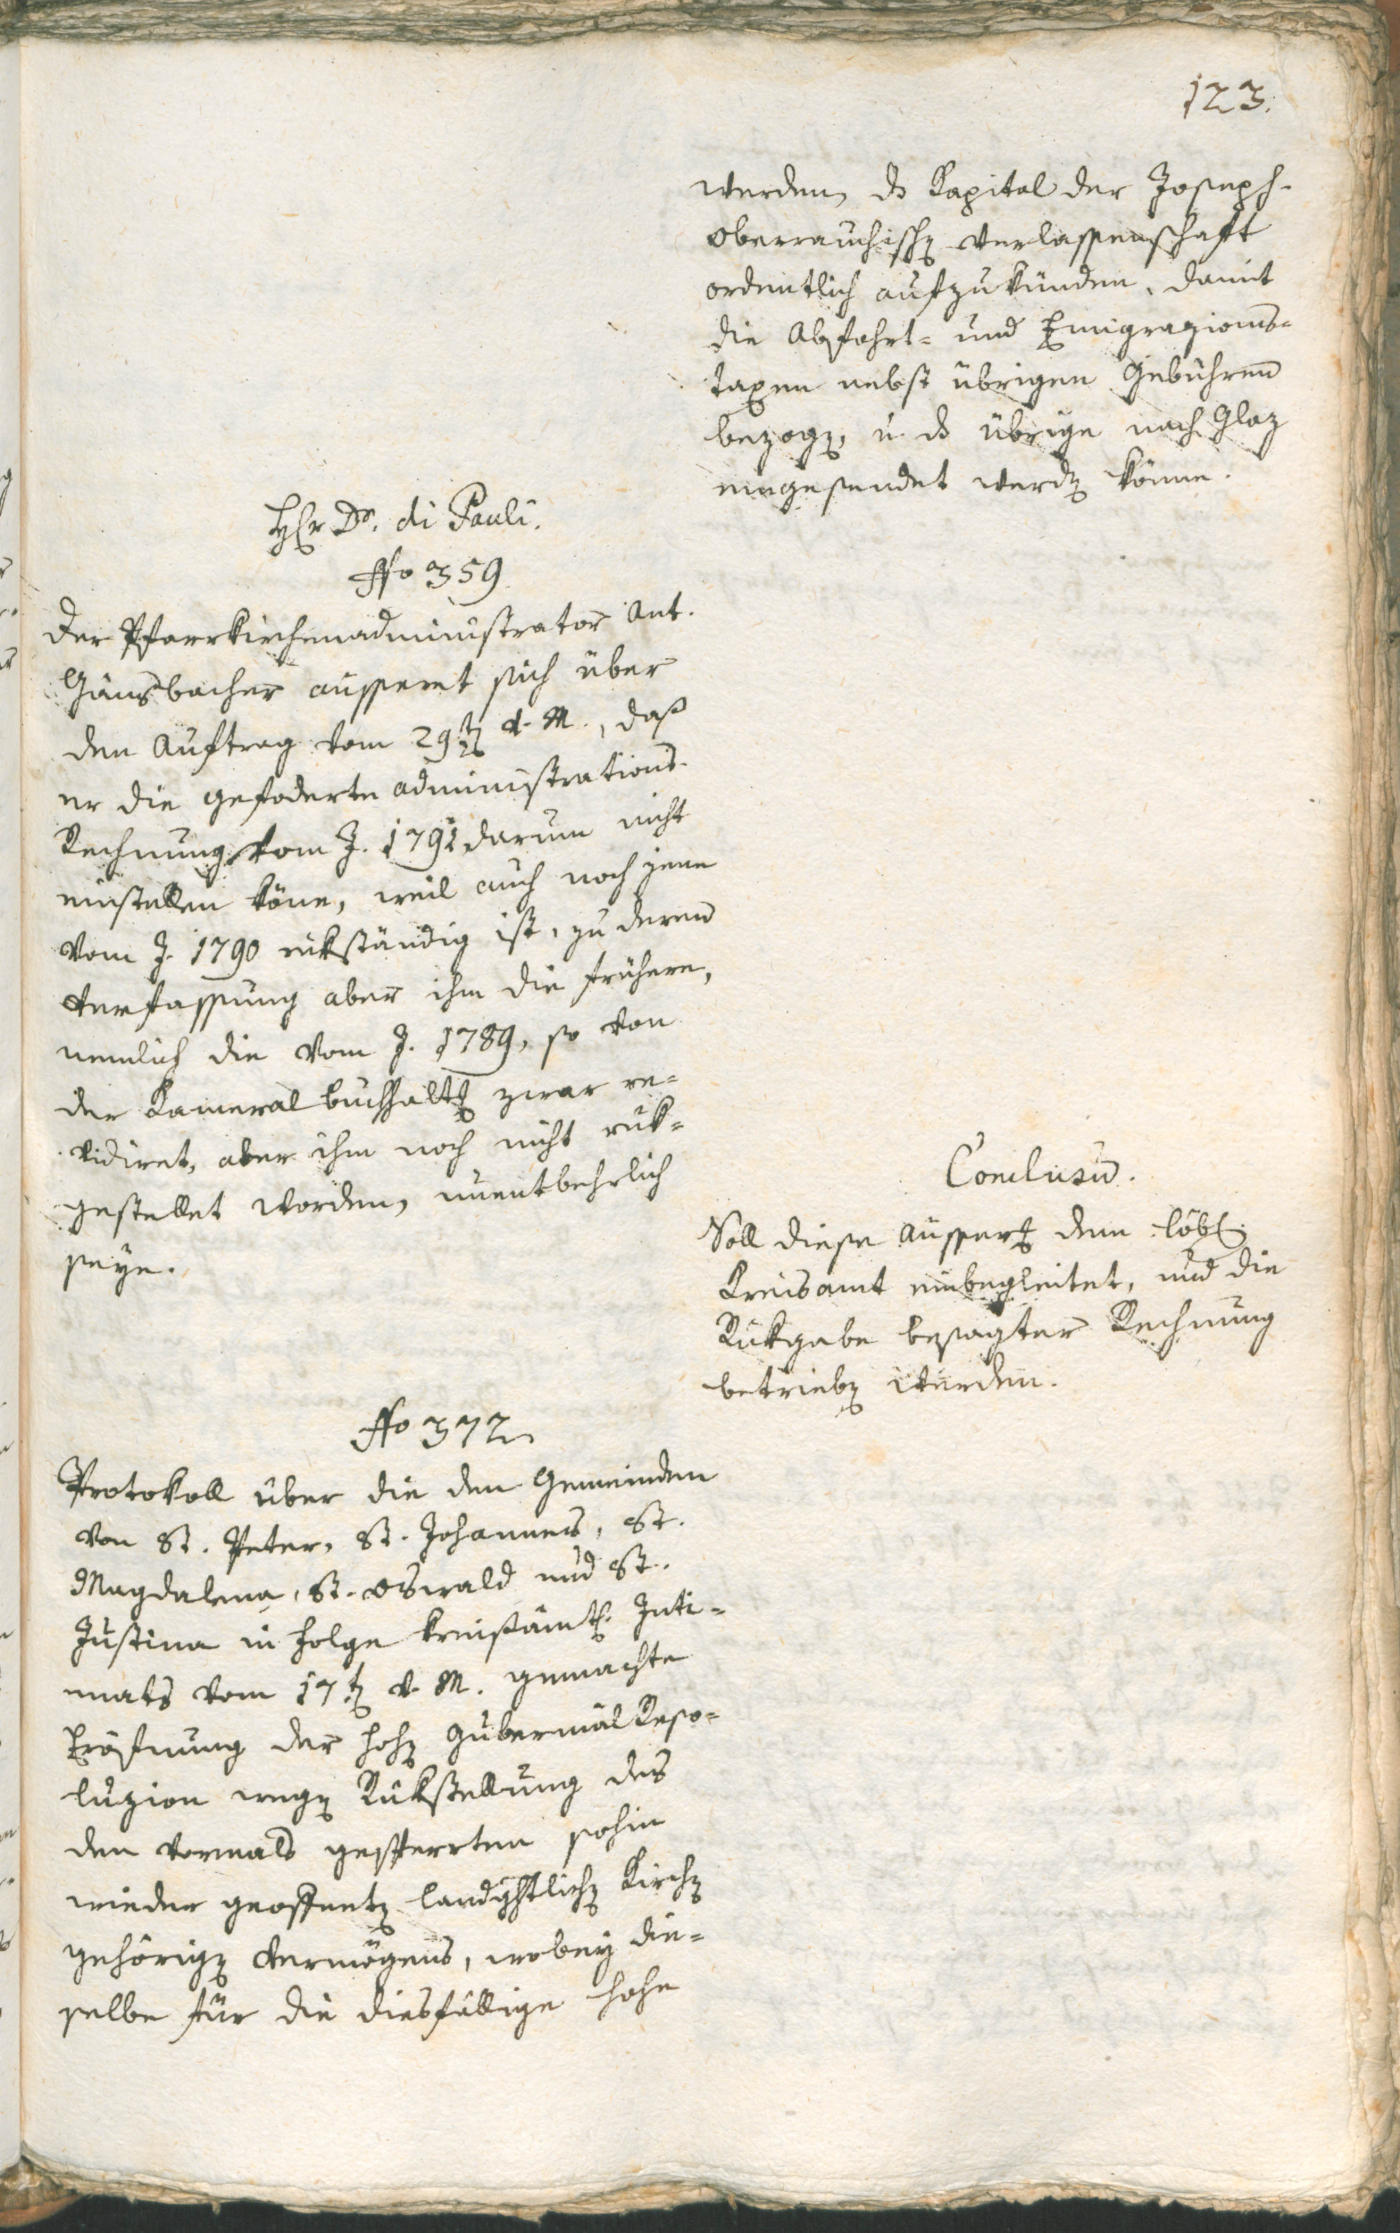 123.
werden, ds Kapital der Joseph-
oberrauchischen Verlassenschaft
ordentlich aufzukünden, damit
die Abfahrt- und Emigrazions-
taxen nebst übrigen Gebühren
bezogen, u. ds übrige nach Glaz
eingesendet werden könne.
Hr Dr. di Pauli.
No 359
Der Pfarrkirchenadministrator Ant.
Gänsbacher äussert sich über
den Auftrag vom 29ten v. M., daß
er die gefoderte administrations-
Rechnung vom J. 1791 darum nicht
einstellen köne, weil auch noch jene
vom J. 1790 rükständig ist, zu deren
Verfassung aber ihm die frühere,
nemlich die vom J. 1789, so von
der Kameralbuchhaltg zwar re-
vidiret, aber ihm noch nicht rük-
gestellet worden, unentbehrlich
seye.
Conclusum.
Soll diese äusserg dem löbl.
Kreisamt einbegleitet, und die
Rükgabe besagter Rechnung
betrieben werden.
No 372
Protokoll über die den Gemeinden
von St. Peter, St. Johannes, St.
Magdalena, St. Oswald und St.
Justina in Folge kreisämtl. Inti-
mats vom 17ten v. M. gemachte
Eröffnung der hohen Gubernial Reso-
luzion wegen Rükstellung des
den vormals gesperrten sohin
wieder geöffneten landgerichtlichen Kirchen
gehörigen Vermögens, wobey die-
selbe für die diesfällige hohe